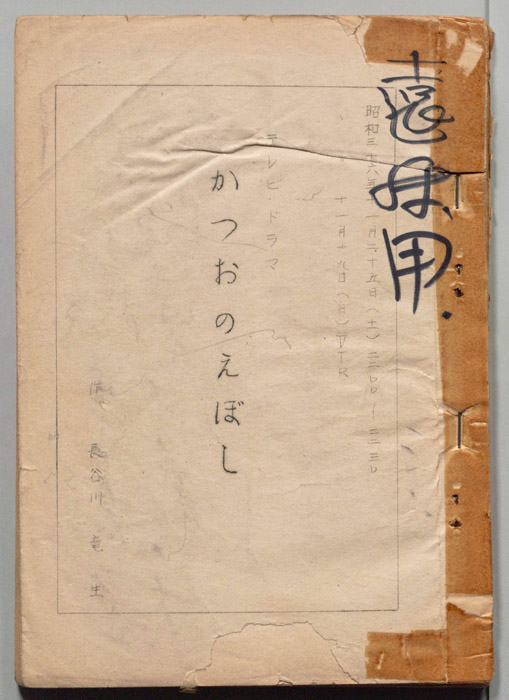 用
昭和三十六年十一月二十五日(土)二二〇〇〜二二三〇
十一月十九日(日)VTR
テレビ・ドラマ
かつおのえぼし
作 長谷川 竜 生